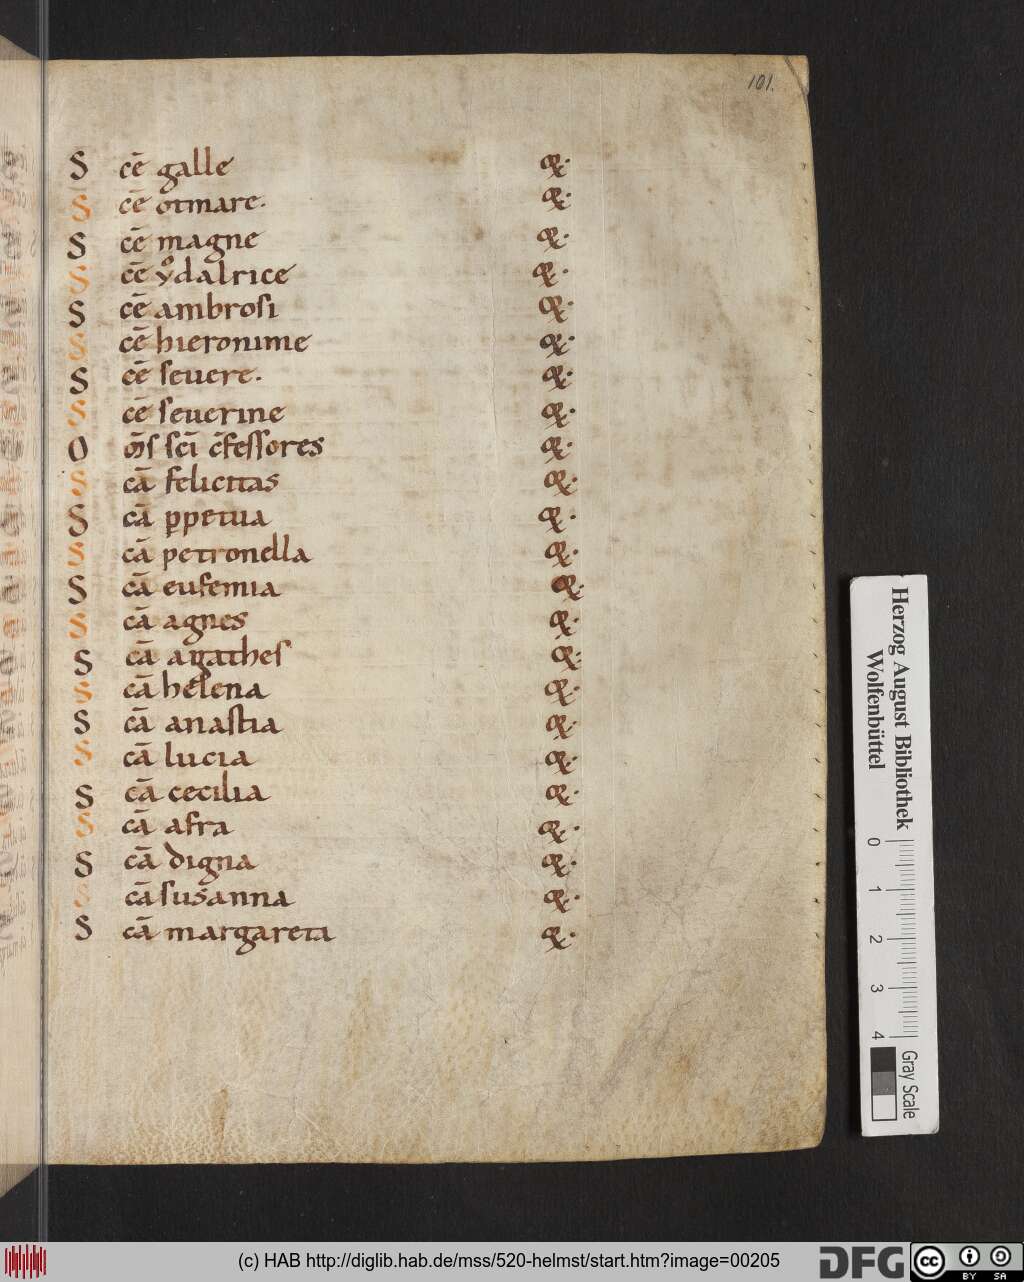 101.
S cē galle or̄.
S cē otmare. or̄.
S cē magne or̄.
S cē yͦdalrice or̄.
S cē ambrosi or̄.
S cē hieronime or̄.
S cē ſeuere. or̄.
S cē ſeuerine or̄.
O m̄ſ ſcī c̄feſſores or̄.
S cā felicitas or̄.
S cā ꝑpetua or̄.
S cā petronella or̄.
S cā eufemia or̄.
S cā agnes or̄.
S cā agatheſ or̄.
S cā helena or̄.
S cā anaſtia or̄.
S cā lucia or̄.
S cā cecilia or̄.
S cā afra or̄.
S cā digna or̄.
S cā ſusanna or̄.
S cā margareta or̄.
Herzog August Bibliothek
Wolfenbüttel
0 1 2 3 4
Gray Scale
(c) HAB http://diglib.hab.de/mss/520-helmst/start.htm?image=00205
DFG
cc BY SA